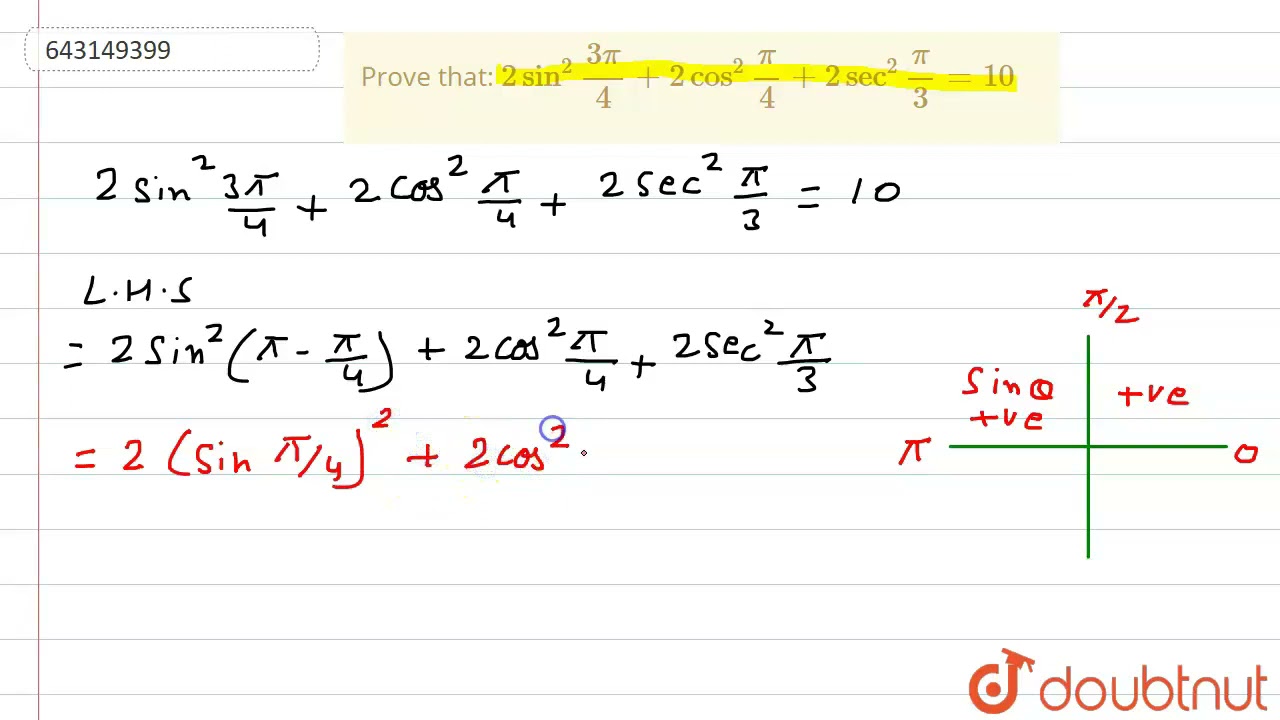 643149399
Prove that: 2 sin² 3π/4 + 2 cos² π/4 + 2 sec² π/3 = 10
2 sin² 3π/4 + 2 cos² π/4 + 2 sec² π/3 = 10
L.H.S
= 2 sin² (π - π/4) + 2 cos² π/4 + 2 sec² π/3
= 2 (sin π/4)² + 2 cos²
π/2
sin θ
+ve
+ve
π
0
doubtnut